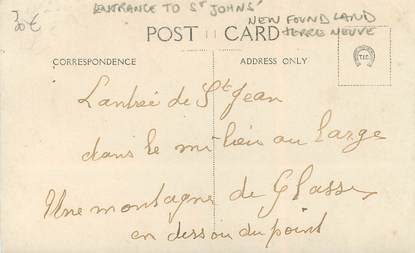 30€
ENTRANCE TO ST JOHNS'
NEW FOUND LAND
TERRE NEUVE
POST CARD
CORRESPONDENCE
ADDRESS ONLY
L'antrée de St Jean
dans le milieu au large
Une montagne de Glasse
en dessou du point